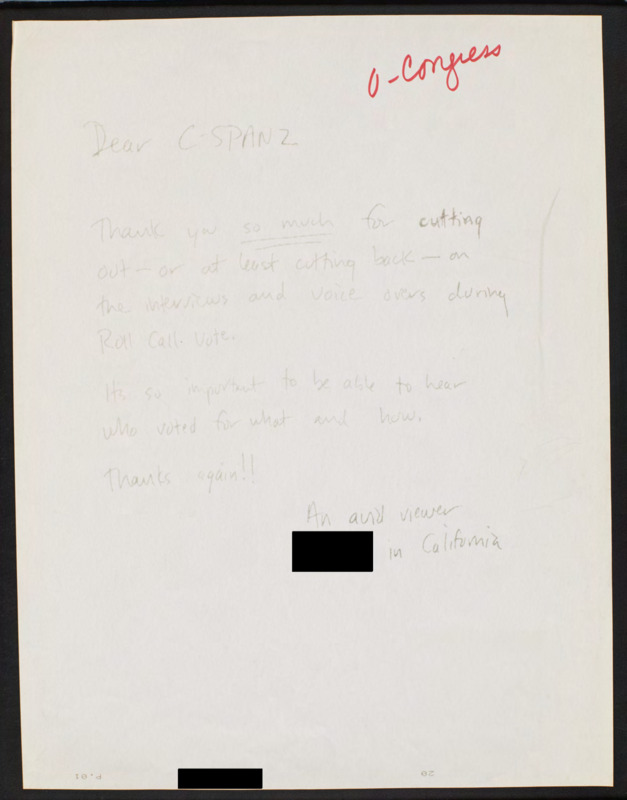 O-Congress
Dear C-SPAN 2
Thank you so much for cutting
out – or at least cutting back – on
the interviews and voice overs during
Roll Call Vote.
It's so important to be able to hear
who voted for what and how.
Thanks again!!
An avid viewer
in California